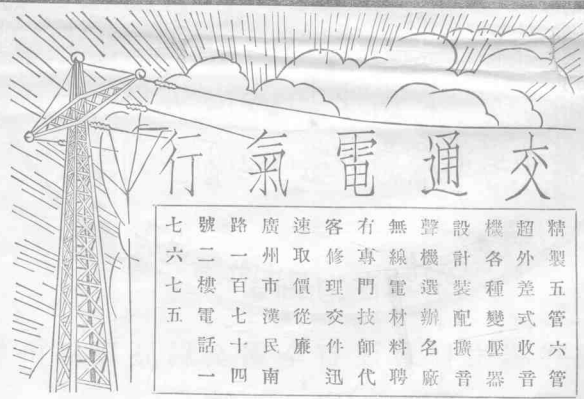 交通電氣行
精製五管六管
超外差式收音
機各種變壓器
設計裝配擴音
聲機選辦名廠
無線電材料聘
有專門技師代
客修理交件迅
速取價從廉
廣州市漢民南
路一百七十四
號二樓電話一
七六七五